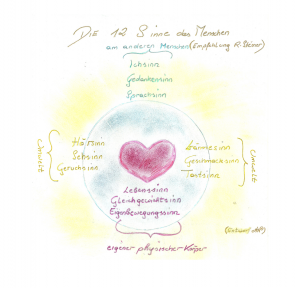 DIE 12 Sinne des Menschen
am anderen Menschen (Empfehlung R. Steiner)
Ichsinn
Gedankensinn
Sprachsinn
Umwelt
Hörsinn
Sehsinn
Geruchsinn
Wärmesinn
Geschmacksinn
Tastsinn
Umwelt
Lebenssinn
Gleichgewichtssinn
Eigenbewegungssinn
eigener physischer Körper